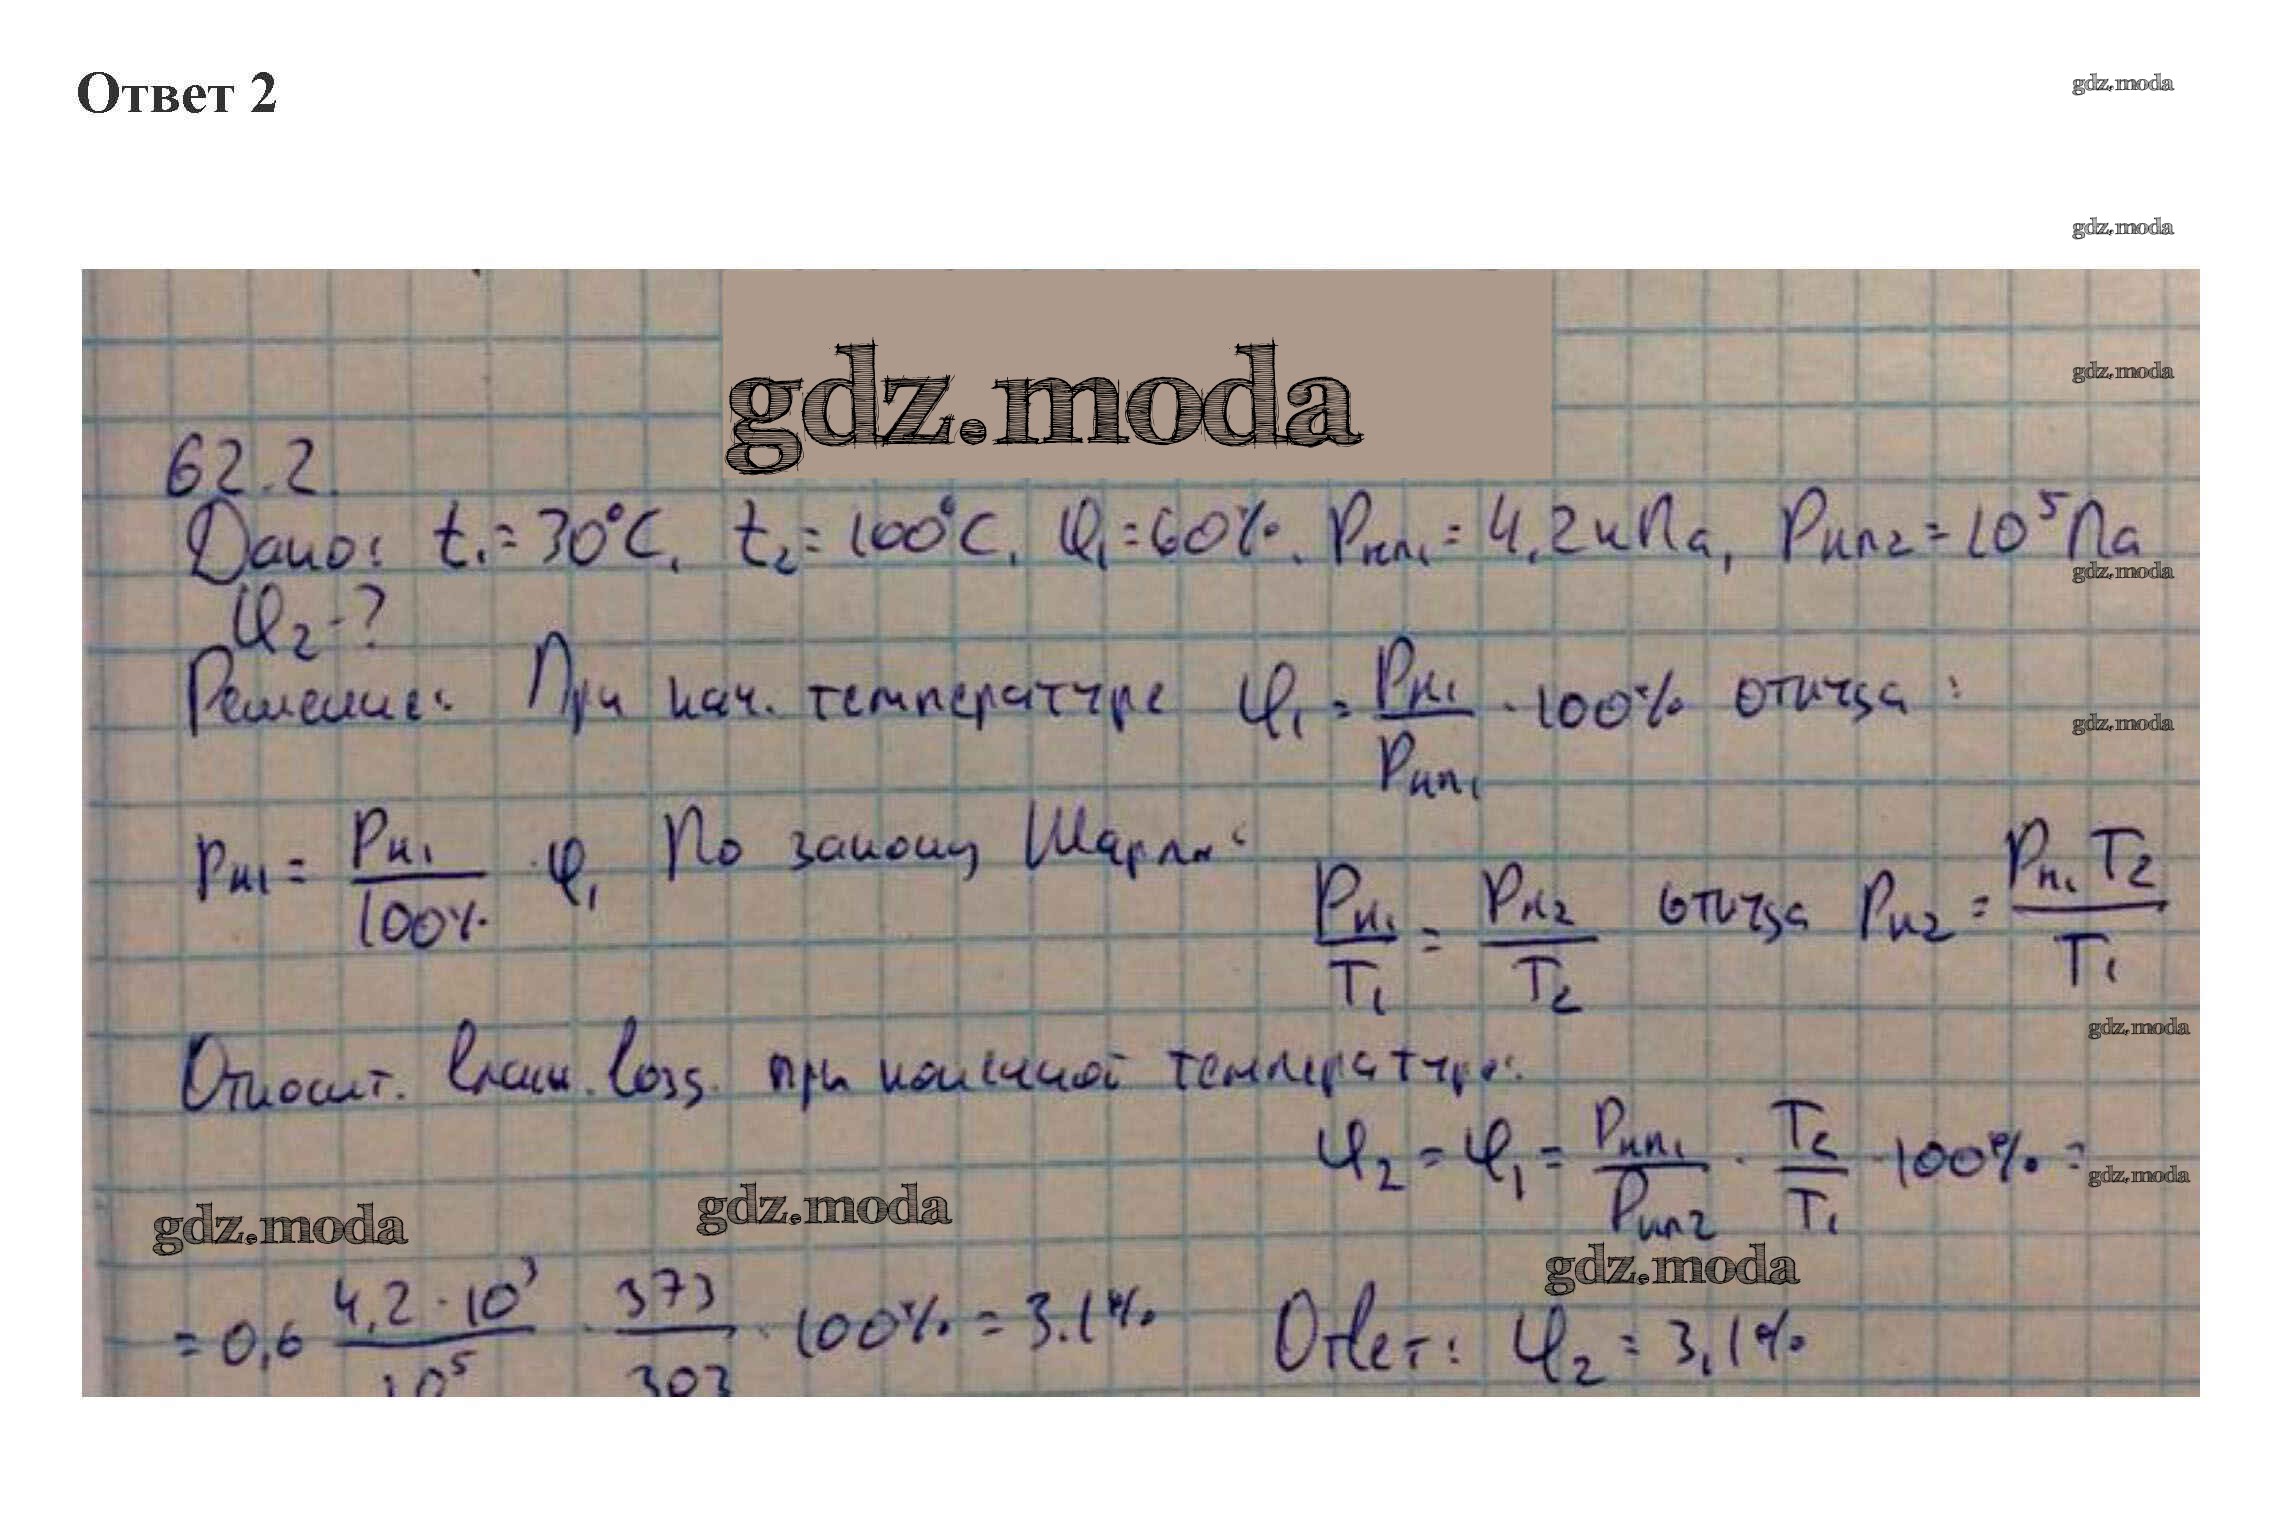 Ответ 2
gdz.moda
gdz.moda
gdz.moda
gdz.moda
62.2.
Дано: t₁ = 30°C, t₂ = 100°C, φ₁ = 60%. Pнп₁ = 4,2 кПа, Pнп2 = 10⁵ Па
gdz.moda
φ₂ - ?
Решение: При нач. температуре φ₁ = Pн₁ / Pнп₁ · 100% откуда:
gdz.moda
Pн1 = Pн₁ / 100% · φ₁ По закону Шарля: Pн₁ / T₁ = Pн2 / T₂ откуда Pн2 = Pн₁ T₂ / T₁
gdz.moda
Относит. влаж. возд. при конечной температуре:
φ₂ = φ₁ = Pнп₁ / Pнп2 · T₂ / T₁ · 100% =
gdz.moda
gdz.moda
gdz.moda
gdz.moda
= 0,6 4,2 · 10³ / 10⁵ · 373 / 303 · 100% = 3.1% Ответ: φ₂ = 3,1%